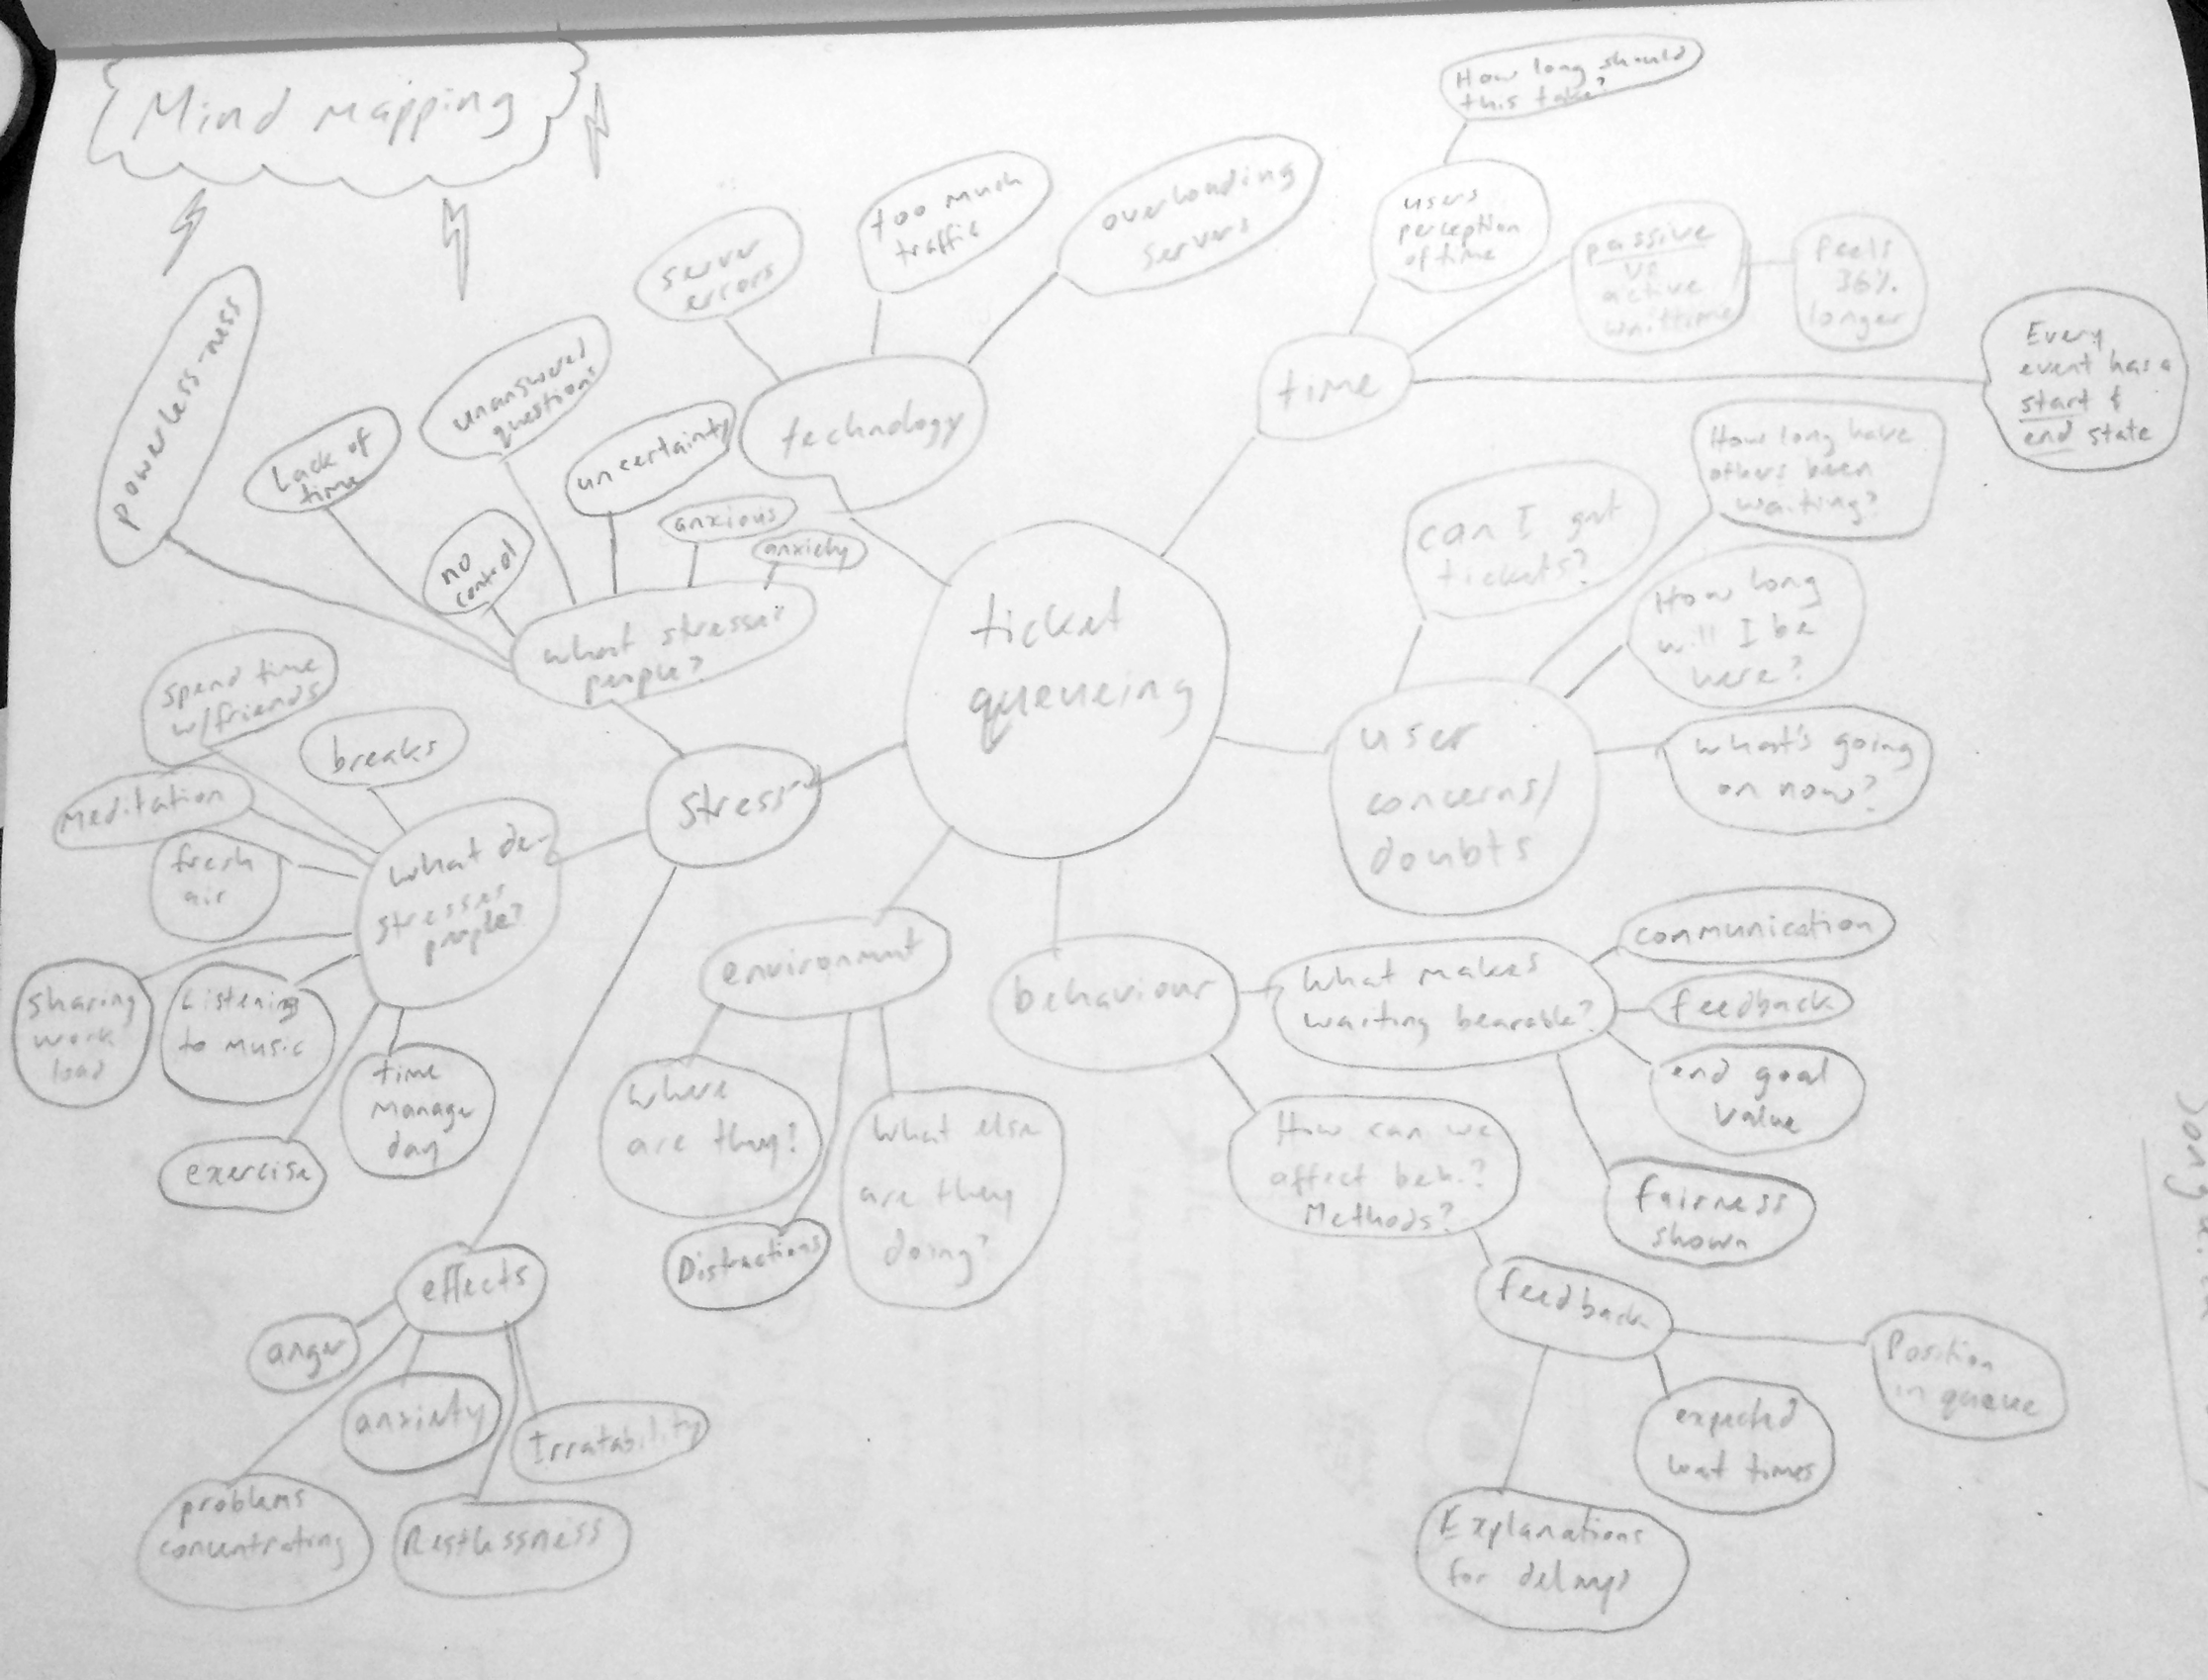 Mind mapping
How long should
this take?
users
perception
of time
passive
vs
active
waittime
feels
36%
longer
Every
event has a
start &
end state
time
too much
traffic
overloading
servers
server
errors
technology
powerless-ness
Lack of
time
unanswered
questions
uncertainty
anxious
anxiety
no
control
what stresses
people?
ticket
queueing
can I get
tickets?
How long have
others been
waiting?
How long
will I be
here?
what's going
on now?
user
concerns/
doubts
spend time
w/friends
breaks
Meditation
fresh
air
what de-
stresses
people?
stress
sharing
work
load
Listening
to music
time
manage
day
exercise
environment
where
are they?
Distractions
What else
are they
doing?
behaviour
What makes
waiting bearable?
communication
feedback
end goal
value
fairness
shown
How can we
affect beh.?
Methods?
feedback
Position
in queue
expected
wait times
Explanations
for delays
effects
anger
anxiety
Irratability
problems
concentrating
Restlessness